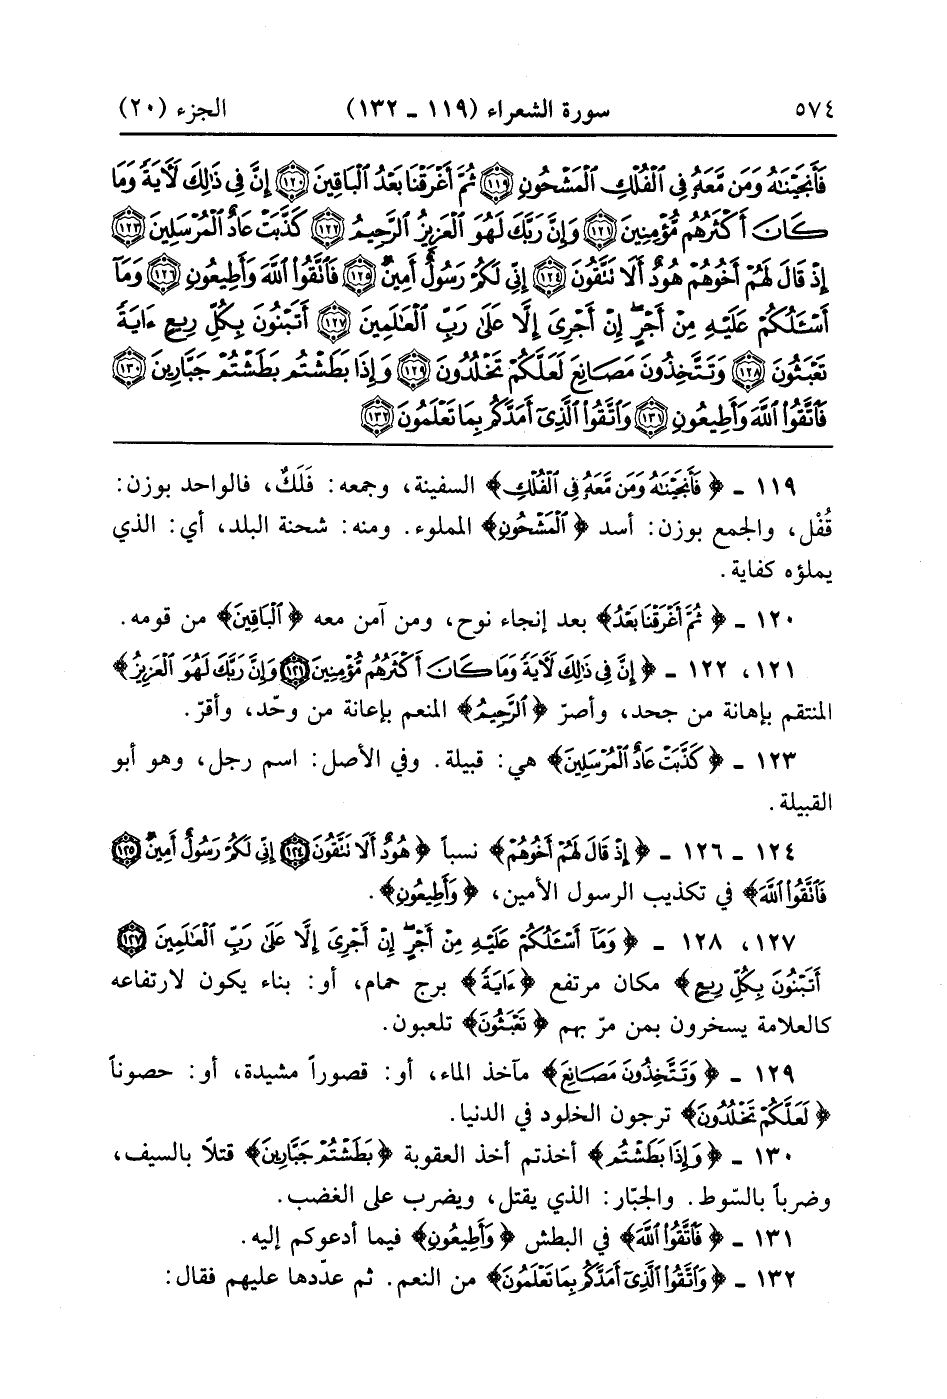 ٥٧٤ سورة الشعراء (١١٩ ـ ١٣٢) الجزء (٢٠)
فَأَنجَيْنَٰهُ وَمَن مَّعَهُۥ فِى ٱلْفُلْكِ ٱلْمَشْحُونِ ﴿١١٩﴾ ثُمَّ أَغْرَقْنَا بَعْدُ ٱلْبَاقِينَ ﴿١٢٠﴾ إِنَّ فِى ذَٰلِكَ لَءَايَةً وَمَا
كَانَ أَكْثَرُهُم مُّؤْمِنِينَ ﴿١٢١﴾ وَإِنَّ رَبَّكَ لَهُوَ ٱلْعَزِيزُ ٱلرَّحِيمُ ﴿١٢٢﴾ كَذَّبَتْ عَادٌ ٱلْمُرْسَلِينَ ﴿١٢٣﴾
إِذْ قَالَ لَهُمْ أَخُوهُمْ هُودٌ أَلَا نَتَّقُونَ ﴿١٢٤﴾ إِنِّى لَكُمْ رَسُولٌ أَمِينٌ ﴿١٢٥﴾ فَٱتَّقُوا۟ ٱللَّهَ وَأَطِيعُونِ ﴿١٢٦﴾ وَمَآ
أَسْـَٔلُكُمْ عَلَيْهِ مِنْ أَجْرٍ إِنْ أَجْرِىَ إِلَّا عَلَىٰ رَبِّ ٱلْعَٰلَمِينَ ﴿١٢٧﴾ أَتَبْنُونَ بِكُلِّ رِيعٍ ءَايَةً
تَعْبَثُونَ ﴿١٢٨﴾ وَتَتَّخِذُونَ مَصَانِعَ لَعَلَّكُمْ تَخْلُدُونَ ﴿١٢٩﴾ وَإِذَا بَطَشْتُم بَطَشْتُمْ جَبَّارِينَ ﴿١٣٠﴾
فَٱتَّقُوا۟ ٱللَّهَ وَأَطِيعُونِ ﴿١٣١﴾ وَٱتَّقُوا۟ ٱلَّذِىٓ أَمَدَّكُم بِمَا تَعْلَمُونَ ﴿١٣٢﴾
١١٩ ـ ﴿فَأَنجَيْنَٰهُ وَمَن مَّعَهُۥ فِى ٱلْفُلْكِ﴾ السفينة، وجمعه: فَلَكٌ، فالواحد بوزن:
قُفْل، والجمع بوزن: أسد ﴿ٱلْمَشْحُونِ﴾ المملوء. ومنه: شحنة البلد، أي: الذي
يملؤه كفاية.
١٢٠ ـ ﴿ثُمَّ أَغْرَقْنَا بَعْدُ﴾ بعد إنجاء نوح، ومن آمن معه ﴿ٱلْبَاقِينَ﴾ من قومه.
١٢١، ١٢٢ ـ ﴿إِنَّ فِى ذَٰلِكَ لَءَايَةً وَمَا كَانَ أَكْثَرُهُم مُّؤْمِنِينَ ﴿١٢١﴾ وَإِنَّ رَبَّكَ لَهُوَ ٱلْعَزِيزُ﴾
المنتقم بإهانة من جحد، وأصرّ ﴿ٱلرَّحِيمُ﴾ المنعم بإعانة من وحّد، وأقرّ.
١٢٣ ـ ﴿كَذَّبَتْ عَادٌ ٱلْمُرْسَلِينَ﴾ هي: قبيلة. وفي الأصل: اسم رجل، وهو أبو
القبيلة.
١٢٤ ـ ١٢٦ ـ ﴿إِذْ قَالَ لَهُمْ أَخُوهُمْ﴾ نسباً ﴿هُودٌ أَلَا نَتَّقُونَ ﴿١٢٤﴾ إِنِّى لَكُمْ رَسُولٌ أَمِينٌ ﴿١٢٥﴾
فَٱتَّقُوا۟ ٱللَّهَ﴾ في تكذيب الرسول الأمين، ﴿وَأَطِيعُونِ﴾.
١٢٧، ١٢٨ ـ ﴿وَمَآ أَسْـَٔلُكُمْ عَلَيْهِ مِنْ أَجْرٍ إِنْ أَجْرِىَ إِلَّا عَلَىٰ رَبِّ ٱلْعَٰلَمِينَ ﴿١٢٧﴾
أَتَبْنُونَ بِكُلِّ رِيعٍ﴾ مكان مرتفع ﴿ءَايَةً﴾ برج حمام، أو: بناء يكون لارتفاعه
كالعلامة يسخرون بمن مرّ بهم ﴿تَعْبَثُونَ﴾ تلعبون.
١٢٩ ـ ﴿وَتَتَّخِذُونَ مَصَانِعَ﴾ مآخذ الماء، أو: قصوراً مشيدة، أو: حصوناً
﴿لَعَلَّكُمْ تَخْلُدُونَ﴾ ترجون الخلود في الدنيا.
١٣٠ ـ ﴿وَإِذَا بَطَشْتُم﴾ أخذتم أخذ العقوبة ﴿بَطَشْتُمْ جَبَّارِينَ﴾ قتلاً بالسيف،
وضرباً بالسّوط. والجبّار: الذي يقتل، ويضرب على الغضب.
١٣١ ـ ﴿فَٱتَّقُوا۟ ٱللَّهَ﴾ في البطش ﴿وَأَطِيعُونِ﴾ فيما أدعوكم إليه.
١٣٢ ـ ﴿وَٱتَّقُوا۟ ٱلَّذِىٓ أَمَدَّكُم بِمَا تَعْلَمُونَ﴾ من النعم. ثم عدّدها عليهم فقال: